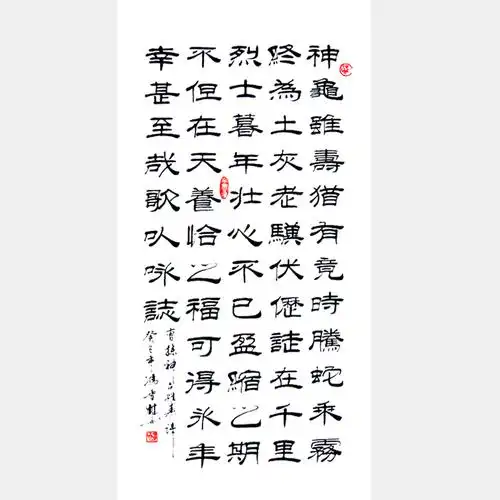 神龜雖壽猶有竟時騰蛇乘霧
終為土灰老驥伏櫪誌在千里
烈士暮年壯心不已盈縮之期
不但在天養恰之福可得永年
幸甚至哉歌以咏誌
曹操神龜雖壽詩
癸巳年馮雪